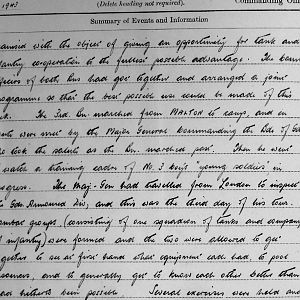 1943
(Delete heading not required).
Commanding Offi
Summary of Events and Information
anned with the object of giving an opportunity for tank and
antry cooperation to the fullest possible advantage. The comm
ficers of both Bns had got together and arranged a joint
ogramme so that the best possible use could be made of this
k. The 2nd. Bn marched from MALTON to camp, and en
ute were met by the Major General Commanding the Bde of Gds
o took the salute as the Bn. marched past. Then he went
watch a training cadre of No. 3 Coy's "young soldiers" in
ogress. The Maj-Gen had travelled from London to inspect
Gds Armoured Div, and this was the third day of his tour.
ombat groups, (consisting of one squadron of tanks and company
f infantry) were formed and the two were allowed to get
gether to see at first hand what equipment each had, to pool
sources, and to generally get to know each other better than
had hitherto been possible. Several exercises were held in